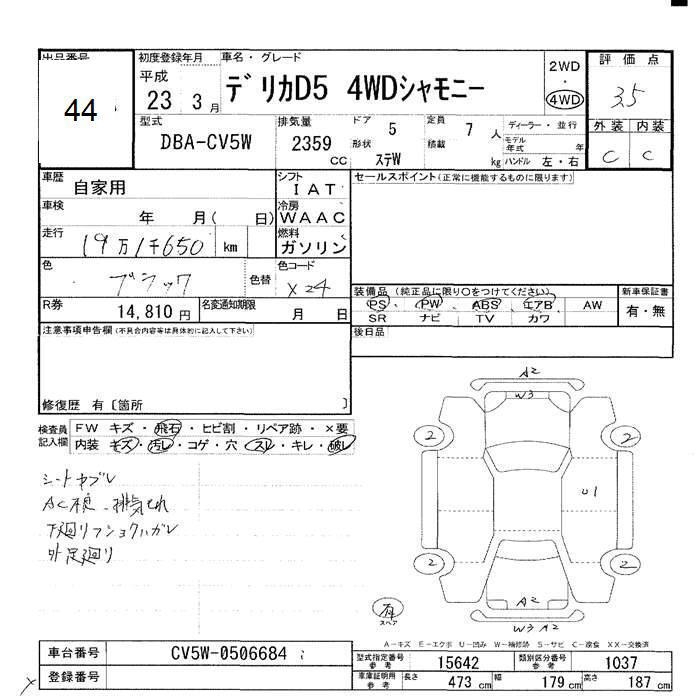 出品番号
44
初度登録年月
平成
23 3 月
車名・グレード
デリカD5 4WDシャモニー
2WD
・
4WD
評価点
3.5
外装 内装
C C
型式
DBA-CV5W
排気量
2359
cc
ドア 5
形状 ステW
定員 7 人
積載 kg
ディーラー・並行
モデル年式 年
ハンドル 左・右
車歴 自家用
シフト
IAT
車検 年 月( 日)
冷房
WAAC
走行 19万1千650 km
燃料
ガソリン
色 ブラック
色替
色コード
X24
R券 14,810 円
名変通知期限 月 日
セールスポイント(正常に機能するものに限ります)
装備品(純正品に限り○をつけてください)
PS PW ABS エアB AW
SR ナビ TV カワ
新車保証書
有・無
後日品
注意事項申告欄(不具合内容等は具体的に記入して下さい)
修復歴 有〔箇所 〕
検査員
記入欄
FW キズ・飛石・ヒビ割・リペア跡・×要
内装 キズ・汚レ・コゲ・穴・スレ・キレ・破レ
AC
A2
W3
2 2
U1
2 2
A2
W3 A2
有
スペア
A-キズ E-エクボ U-凹み W-補修跡 S-サビ C-腐食 XX-交換済
車台番号 CV5W-0506684
登録番号
型式指定番号
参考
15642
類別区分番号
参考
1037
車庫証明用
参考
長さ 473 cm 幅 179 cm 高さ 187 cm